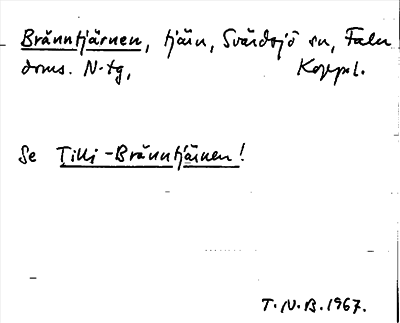 Bränntjärnen, tjärn, Svärdsjö sn, Falu
doms. N-tg, Kopp.l.
Se Tilli-Bränntjärnen!
T.N.B. 1967.